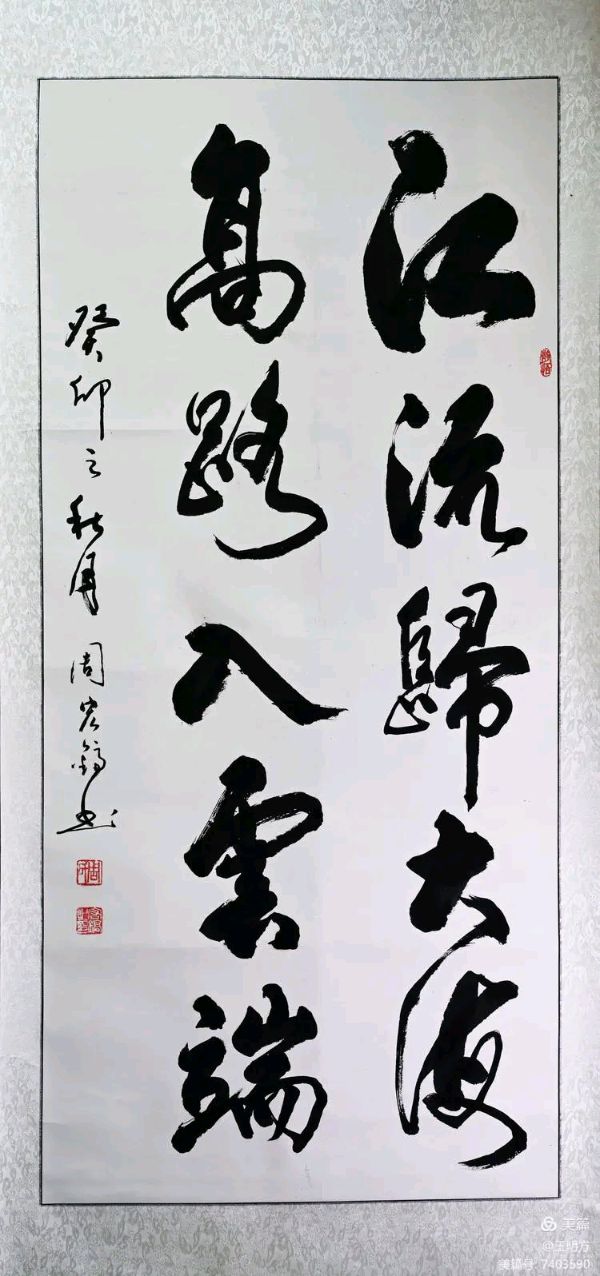 江流歸大海
高路入雲端
癸卯之秋月 周宏錦书
美篇
@王明方
美篇号: 7403590